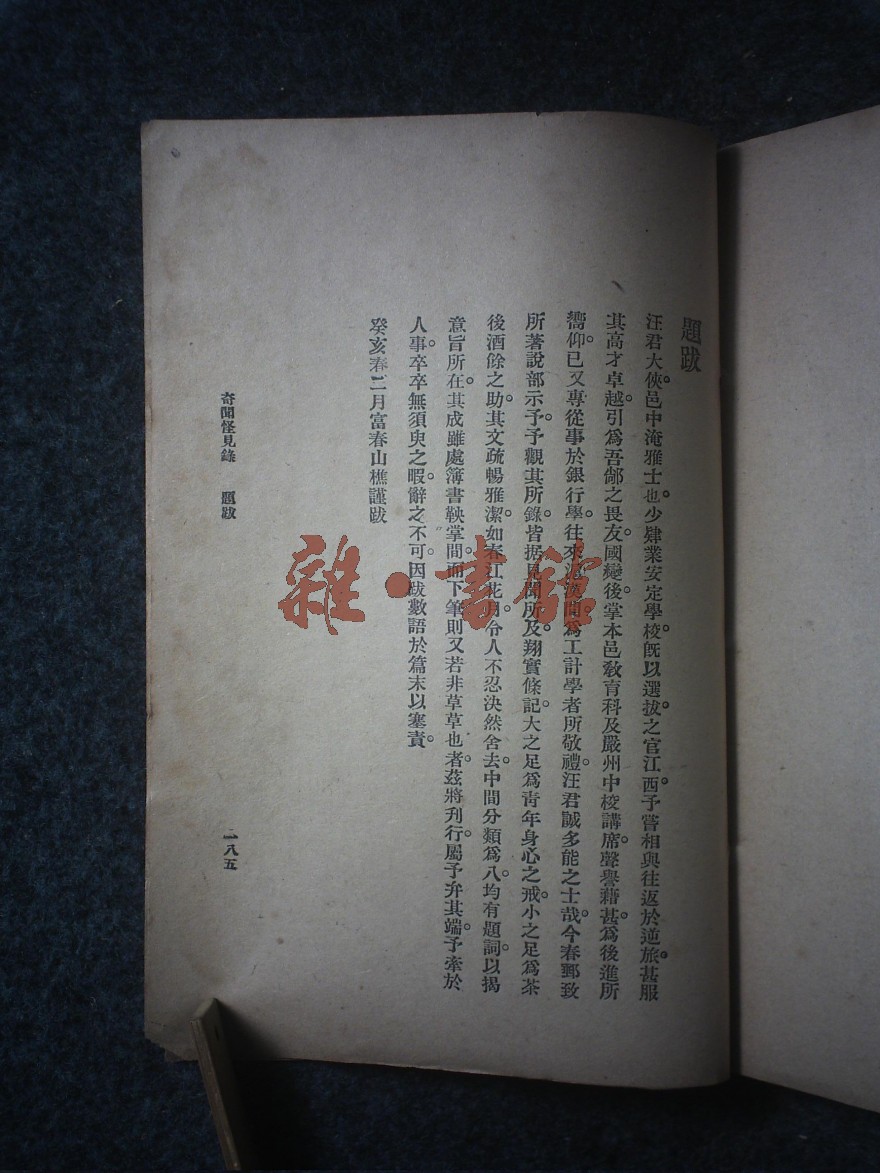 題跋
汪君大俠。邑中淹雅士也。少肄業安定學校。旣以選拔之官江西。予嘗相與往返於逆旅。甚服
其高才卓越。引爲吾鄉之畏友。國變後。掌本邑敎育科及嚴州中校講席。聲譽藉甚。爲後進所
嚮仰。已又專從事於銀行學。往來滬漢間。爲工計學者所敬禮。汪君誠多能之士哉。今春郵致
所著說部示予。予觀其所錄。皆据見聞所及。翔實條記。大之足爲靑年身心之戒。小之足爲茶
後酒餘之助。其文疏暢雅潔。如春江花月。令人不忍決然舍去。中間分類爲八。均有題詞。以揭
意旨所在。其成雖處簿書鞅掌間。而下筆則又若非草草也者。茲將刋行。屬予弁其端。予牽於
人事。卒卒無須臾之暇。辭之不可。因跋數語於篇末以塞責。
癸亥春二月富春山樵謹跋
奇聞怪見錄　題跋
二八五
雜·書館